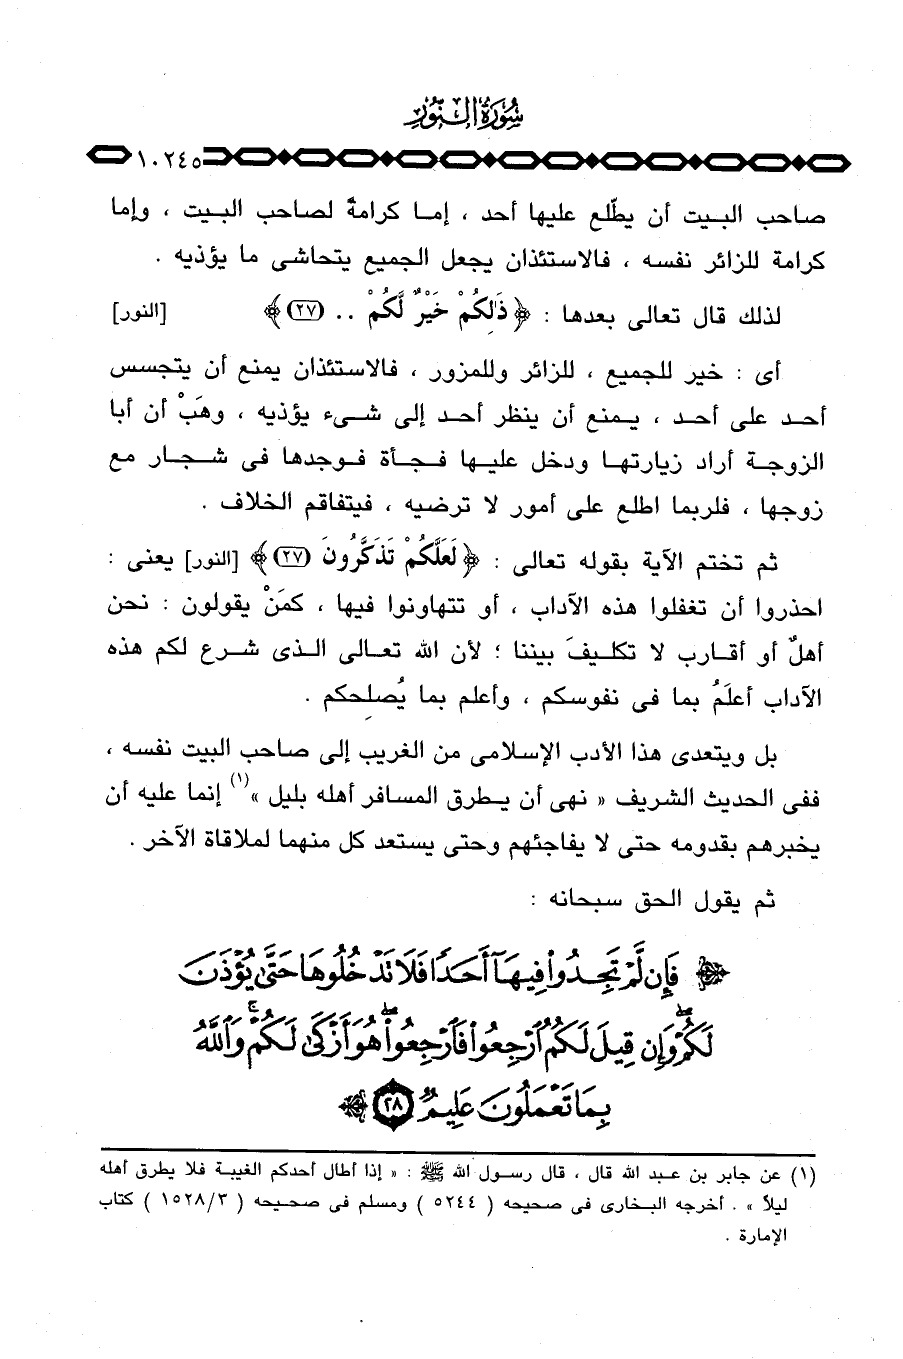 سُورَةُ النُّورِ
١٠٢٤٥
صاحب البيت أن يطّلع عليها أحد ، إما كرامةً لصاحب البيت ، وإما
كرامة للزائر نفسه ، فالاستئذان يجعل الجميع يتحاشى ما يؤذيه .
لذلك قال تعالى بعدها : ﴿ ذَٰلِكُمْ خَيْرٌ لَّكُمْ .. (٢٧) ﴾ [النور]
أى : خير للجميع ، للزائر وللمزور ، فالاستئذان يمنع أن يتجسس
أحد على أحد ، يمنع أن ينظر أحد إلى شىء يؤذيه ، وهَبْ أن أبا
الزوجة أراد زيارتها ودخل عليها فجأة فوجدها فى شجار مع
زوجها ، فلربما اطلع على أمور لا ترضيه ، فيتفاقم الخلاف .
ثم تختم الآية بقوله تعالى : ﴿ لَعَلَّكُمْ تَذَكَّرُونَ (٢٧) ﴾ [النور] يعنى :
احذروا أن تغفلوا هذه الآداب ، أو تتهاونوا فيها ، كمَنْ يقولون : نحن
أهلٌ أو أقارب لا تكليفَ بيننا ؛ لأن الله تعالى الذى شرع لكم هذه
الآداب أعلَمُ بما فى نفوسكم ، وأعلم بما يُصلِحكم .
بل ويتعدى هذا الأدب الإسلامى من الغريب إلى صاحب البيت نفسه ،
ففى الحديث الشريف « نهى أن يطرق المسافر أهله بليل »(١) إنما عليه أن
يخبرهم بقدومه حتى لا يفاجئهم وحتى يستعد كل منهما لملاقاة الآخر .
ثم يقول الحق سبحانه :
﴿ فَإِن لَّمْ تَجِدُوا۟ فِيهَآ أَحَدًا فَلَا تَدْخُلُوهَا حَتَّىٰ يُؤْذَنَ
لَكُمْ ۖ وَإِن قِيلَ لَكُمُ ٱرْجِعُوا۟ فَٱرْجِعُوا۟ ۖ هُوَ أَزْكَىٰ لَكُمْ ۚ وَٱللَّهُ
بِمَا تَعْمَلُونَ عَلِيمٌ ٢٨ ﴾
(١) عن جابر بن عبد الله قال ، قال رسول الله ﷺ : « إذا أطال أحدكم الغيبة فلا يطرق أهله
ليلاً » . أخرجه البخارى فى صحيحه ( ٥٢٤٤ ) ومسلم فى صحيحه ( ١٥٢٨/٣ ) كتاب
الإمارة .